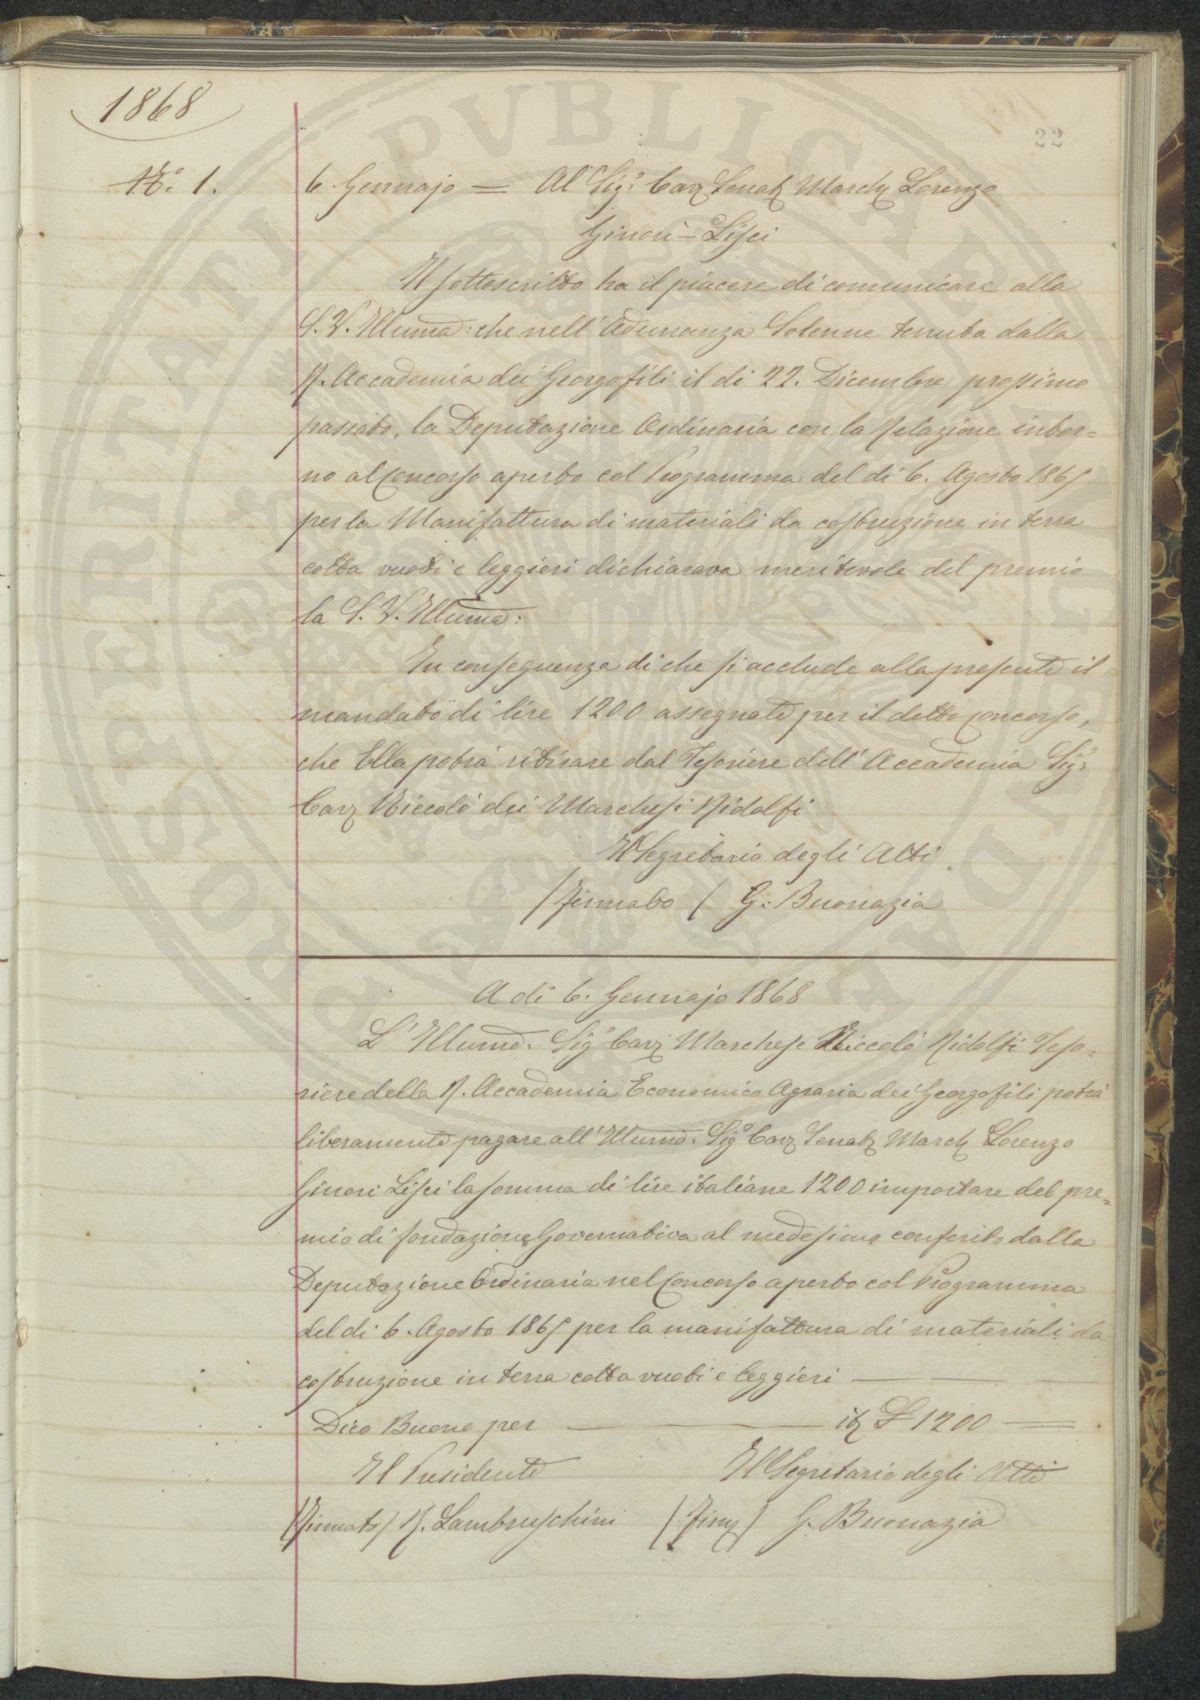 1868
22
N.º 1.
6. Gennajo = Al Sigr. Cav. Senat. March. Lorenzo
Ginori-Lisci
Il sottoscritto ha il piacere di comunicare alla
S. V. Illuma: che nell'Adunanza Solenne tenuta dalla
R. Accademia dei Georgofili il di 22. Dicembre prossimo
passato, la Deputazione Ordinaria con la Relazione intor=
no al Concorso aperto col Programma del di 6. Agosto 1865
per la Manifattura di materiali da costruzione in terra
cotta vuoti e leggieri dichiarava meritevole del premio
la S. V. Illuma:
In conseguenza di che si acclude alla presente il
mandato di lire 1200 assegnate per il detto concorso,
che Ella potrà ritirare dal Tesoriere dell'Accademia Sigr.
Cav. Niccolò dei Marchesi Ridolfi
Il Segretario degli Atti
/Firmato/ G. Buonazia
A di 6. Gennajo 1868
L'Illumo. Sigr Cav. Marchese Niccolò Ridolfi Teso=
riere della R. Accademia Economico Agraria dei Georgofili potrà
liberamente pagare all'Illumo. Sigr Cav. Senat. March. Lorenzo
Ginori Lisci la somma di lire italiane 1200 importare del pre=
mio di fondazione Governativa al medesimo conferito dalla
Deputazione Ordinaria nel Concorso aperto col Programma
del di 6. Agosto 1865 per la manifattura di materiali da
costruzione in terra cotta vuoti e leggieri
Dico Buono per it. £ 1200
Il Presidente Il Segretario degli Atti
/Firmato/ R. Lambruschini /Firm./ G. Buonazia